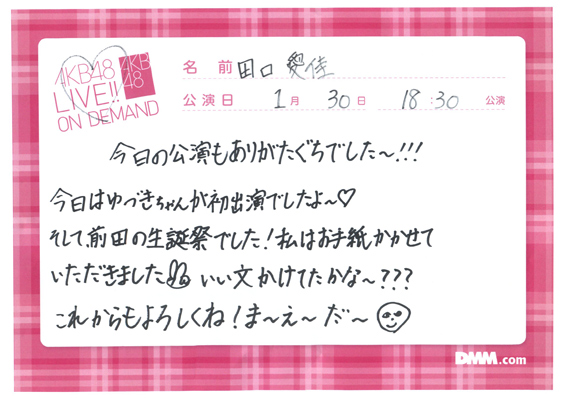 AKB48
LIVE!!
ON DEMAND
AKB
48
名前 田口 愛佳
公演日 1月 30日 18:30 公演
今日の公演もありがたぐちでした〜!!!
今日はゆづきちゃんが初出演でしたよ〜♡
そして、前田の生誕祭でした！私はお手紙かかせて
いただきました いい文かけてたかな〜???
これからもよろしくね！ま〜え〜だ〜
DMM.com